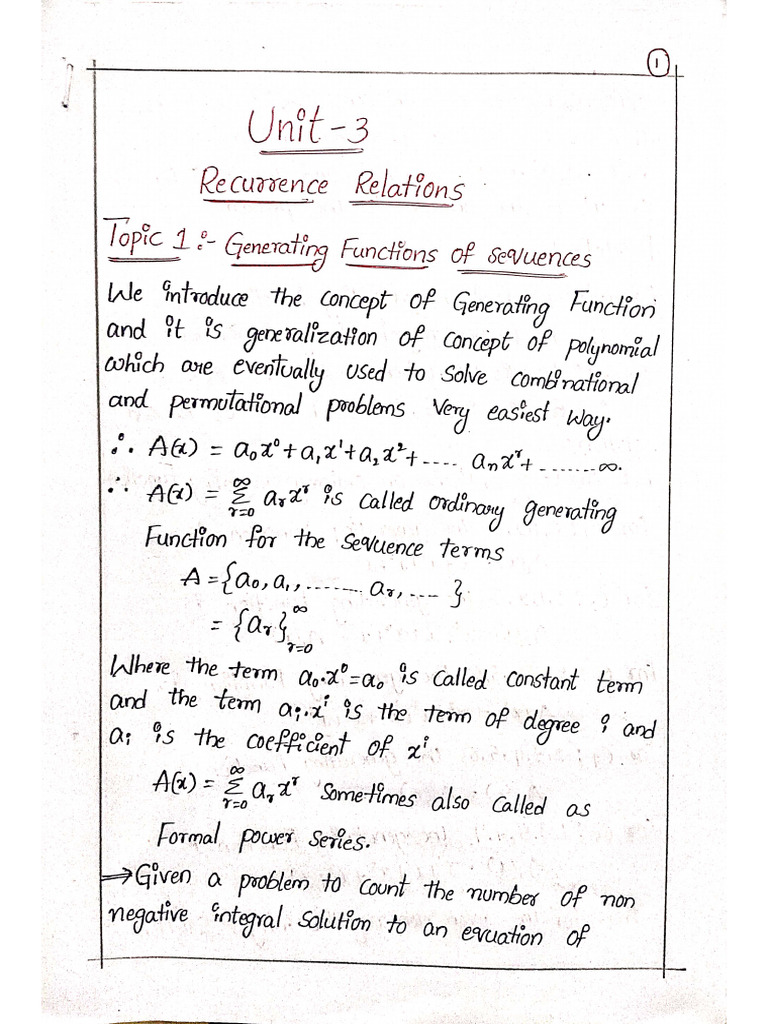 1
Unit-3
Recurrence Relations
Topic 1:- Generating Functions of sevuences
We introduce the concept of Generating Function
and it is generalization of concept of polynomial
which are eventually used to solve combinational
and permutational problems very easiest way.
∴ A(x) = a₀x⁰+a₁x¹+a₂x²+.... aₙxʳ+.......∞.
∴ A(x) = ∞Σr=0 aᵣxʳ is called ordinary generating
Function for the sevuence terms
A = {a₀, a₁, ........ aᵣ, .... }
= {aᵣ}∞r=0
Where the term a₀.x⁰=a₀ is called constant term
and the term aᵢ.xⁱ is the term of degree i and
aᵢ is the coefficient of xⁱ
A(x) = ∞Σr=0 aᵣxʳ sometimes also called as
Formal power series.
⇒ Given a problem to count the number of non
negative integral solution to an evuation of